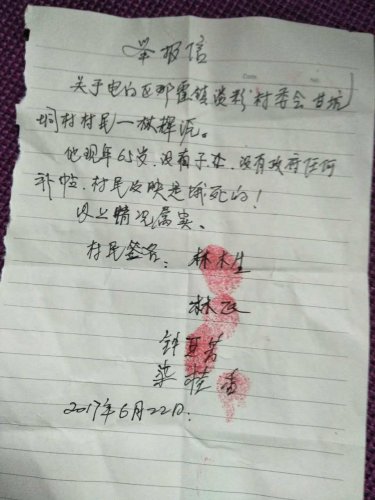 举报信
关于电白区那霍镇淡彩村委会甘坑
垌村村民一林择沅。
他现年65岁、没有子女、没有政府任何
补帖、村民反映是饿死的!
以上情况属实。
村民签名:林木生
林
钟亚芳
梁桂香
2017年6月22日.